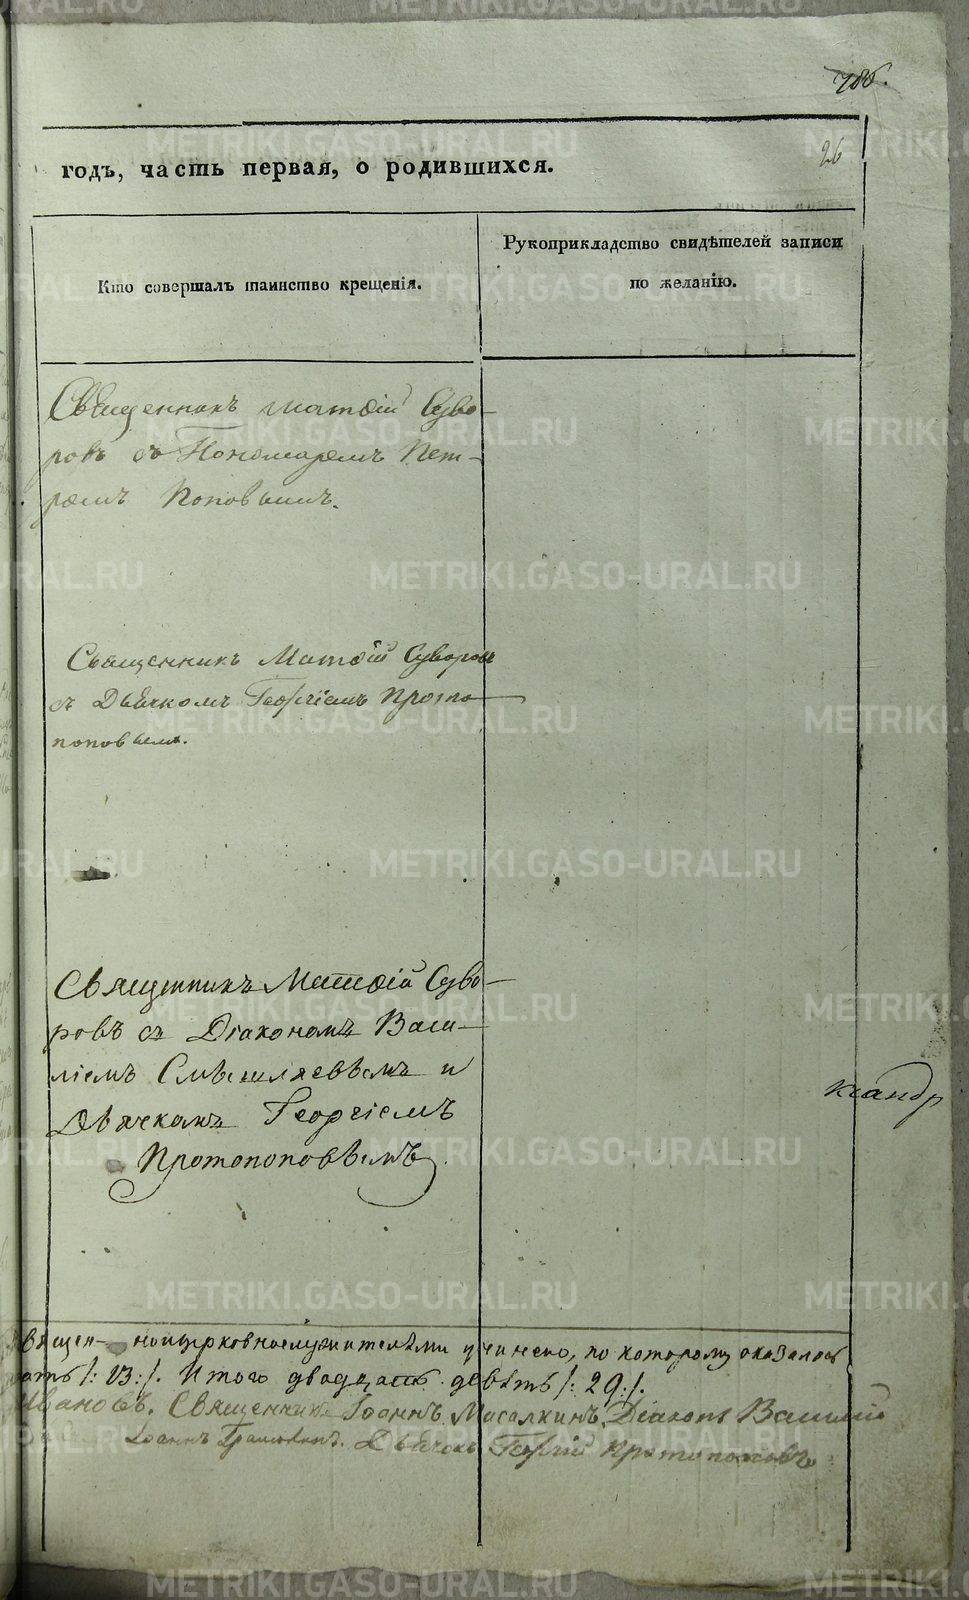 786.
26
годъ, часть первая, о родившихся.
Кто совершалъ таинство крещенія.
Рукоприкладство свидѣтелей записи
по желанію.
Священникъ Матѳій Суво-
ровъ съ Пономаремъ Пет-
ромъ Поповымъ.
Священникъ Матѳій Суворовъ
съ Дьячкомъ Георгіемъ Прото-
поповымъ.
Священникъ Матѳій Суво-
ровъ съ Діакономъ Васи-
ліемъ Смышляевымъ и
Дьячкомъ Георгіемъ
Протопоповымъ
ксандр
Священ-ноицерковнослужителями учинено, по которому оказалось
/: 13 :/. Итого двадцать девять /: 29 :/.
Ивановъ. Священникъ Іоаннъ Масалкинъ, Діаконъ Василій
Іоаннъ Дьячокъ Георгій Протопоповъ
METRIKI.GASO-URAL.RU